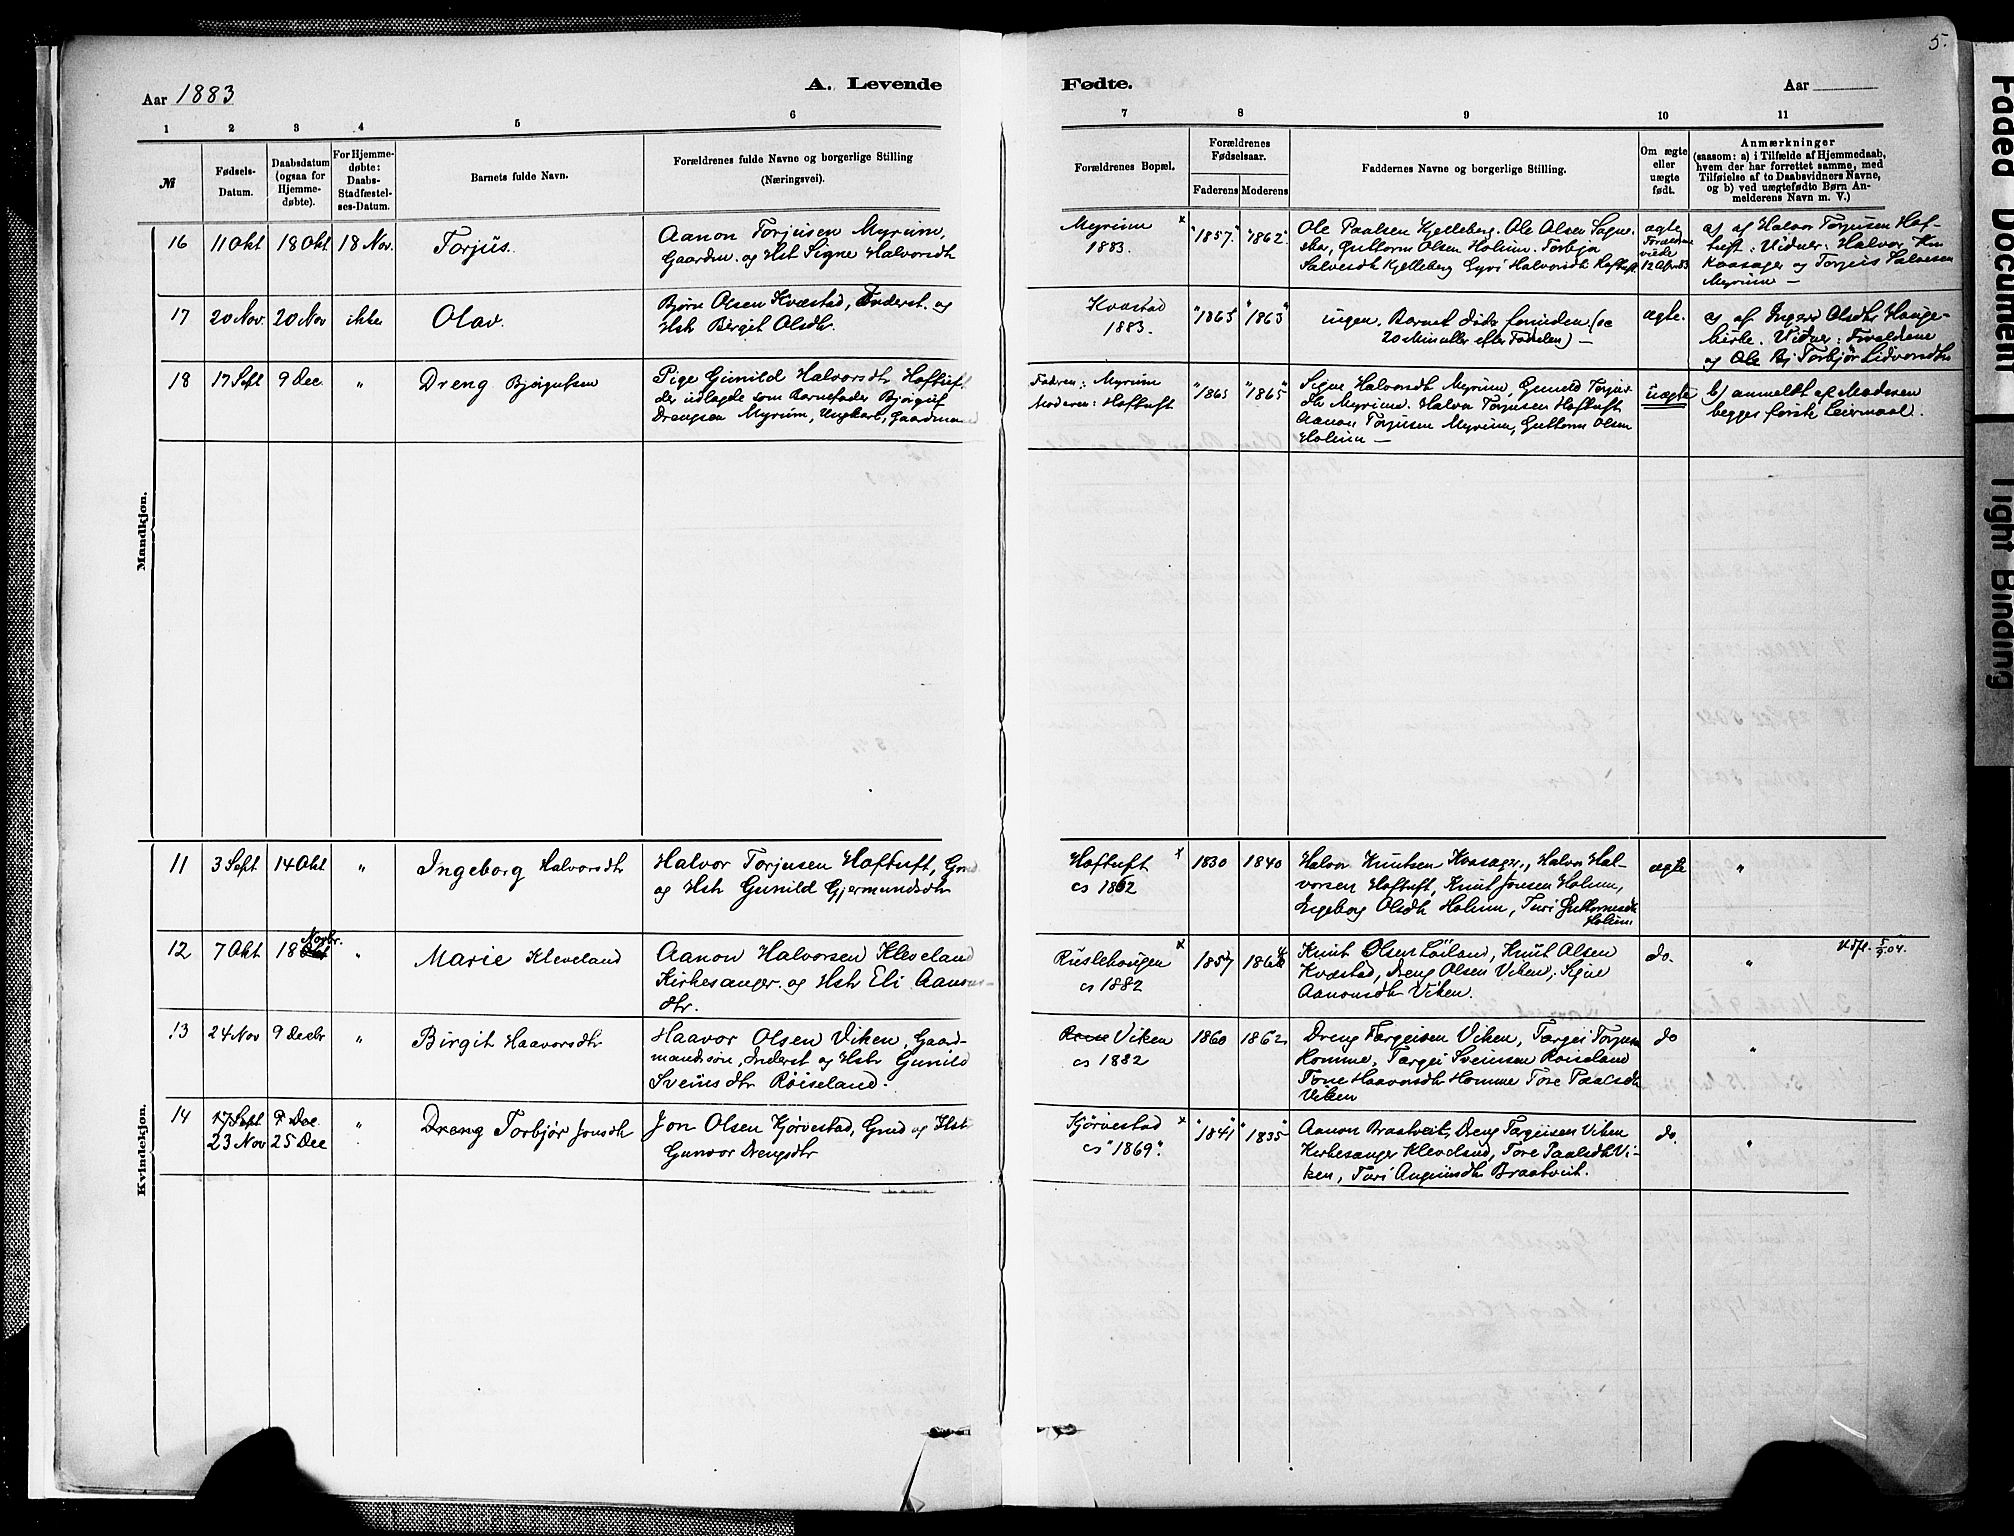 5.
Aar 1883
A. Levende
Fødte.
Aar
1 2 3 4 5 6 7 8 9 10 11
№
Fødsels-
Datum.
Daabsdatum
(ogsaa for
Hjemme-
døbte).
For Hjemme-
døbte:
Daabs-
Stadfæstel-
ses-Datum.
Barnets fulde Navn.
Forældrenes fulde Navne og borgerlige Stilling
(Næringsvei).
Forældrenes Bopæl.
Forældrenes
Fødselsaar.
Faderens Moderens
Faddernes Navne og borgerlige Stilling.
Om ægte
eller
uægte
født.
Anmærkninger
(saasom: a) i Tilfælde af Hjemmedaab,
hvem der har forrettet samme, med
Tilføielse af to Daabsvidners Navne,
og b) ved uægtefødte Børn An-
melderens Navn m. V.)
Mandkjøn.
16
11 Okt
18 Okt
18 Nov.
Torjus.
Aanon Torjusen Myrum,
Gaardm. og Hst Signe Halvorsdtr
Myrum x
1883.
"1857."
"1862"
Ole Paalsen Kjelleberg. Ole Olsen
Guttorm Olsen Holum. Torbjø
Salvesdtr Kjelleberg Gyri Halvorsdtr Hoftuft
ægte
viede
a) af Halvor Torjusen Hof-
tuft. Vidner: Halvor
Kvasager og Torjus Salvesen
Myrum —
17
20 Nov.
20 Nov
ikke
Olav.
Bjørn Olsen Kvæstad, Inderst. og
Hst Bergit Olsdtr.
Kvæstad
1883.
"1863"
ingen. Barnet døde forinden (ca
20 Minutter efter Fødselen) —
ægte.
a) af Inger Olsdtr Hauge-
Vidner: Forældrene
og Ole Torbjør
18
17 Sept
9 Dec.
"
Dreng Bjørgufsen
Pige Gunild Halvorsdtr Hoftuft
der udlagde som Barnefader Bjørguf
Drengsen Myrum, Ungkarl, Gaardmand
Fadren: Myrum
Moderen: Hoftuft
"1865"
Signe Halvorsdt Myrum, Gunild Torjus-
dtr Myrum. Halvor Torjusen Hoftuft
Aanon Torjusen Myrum, Guttorm Olsen
Holum —
uægte
b) anmeldt af Moderen
begges første Leiermaal.
Kvindekjøn.
11
3 Sept
14 Okt
"
Ingeborg Halvorsdtr
Halvor Torjusen Hoftuft,
og Hst Gunild Gjermundsdtr
Hoftuft x
cs 1862
1830
1840
Halvor Knutsen Kvasager, Halvor Hal-
vorsen Hoftuft, Knut Jonsen Holum,
Ingeborg Olsdtr Holum, Turi Guttormsdtr
Holum
ægte
"
12
7 Okt
Novbr.
18 Okt
"
Marie Kleveland
Aanon Halvorsen Kleveland
Kirkesanger. og Hst Eli Aanons-
dtr.
Rueslehougen x
cs 1882
1857
Knut Olsen Løiland, Knut Olsen
Kvæstad, Dreng Olsen Viken, Signe
Aanonsdtr Viken.
do.
"
13
24 Nov
9 Decbr
"
Birgit Haavorsdtr
Haavor Olsen Viken, Gaard-
mandssøn, Inderst og Hst Gunild
Sveinsdtr Røiseland.
Viken
cs 1882
1860
1862
Dreng Targeisen Viken, Targei Torjusen
Homme, Targei Sveinsen Røiseland
Tone Haavorsdtr Homme Tore Paalsdtr
Viken
do
"
14
17 Sept
23 Nov
9 Dec
25 Dec
"
Dreng Torbjør Jonsdtr
Jon Olsen Kjørvestad, Gmd og Hst
Gunvor Drengsdtr
Kjørvestad x
cs "1869".
"1841"
"1835"
Aanon Braatveit, Dreng Targeisen Viken
Kirkesanger Kleveland, Tore Paalsdtr Vi-
ken, Turi Braatveit.
do.
"
Faded Document
Tight Binding